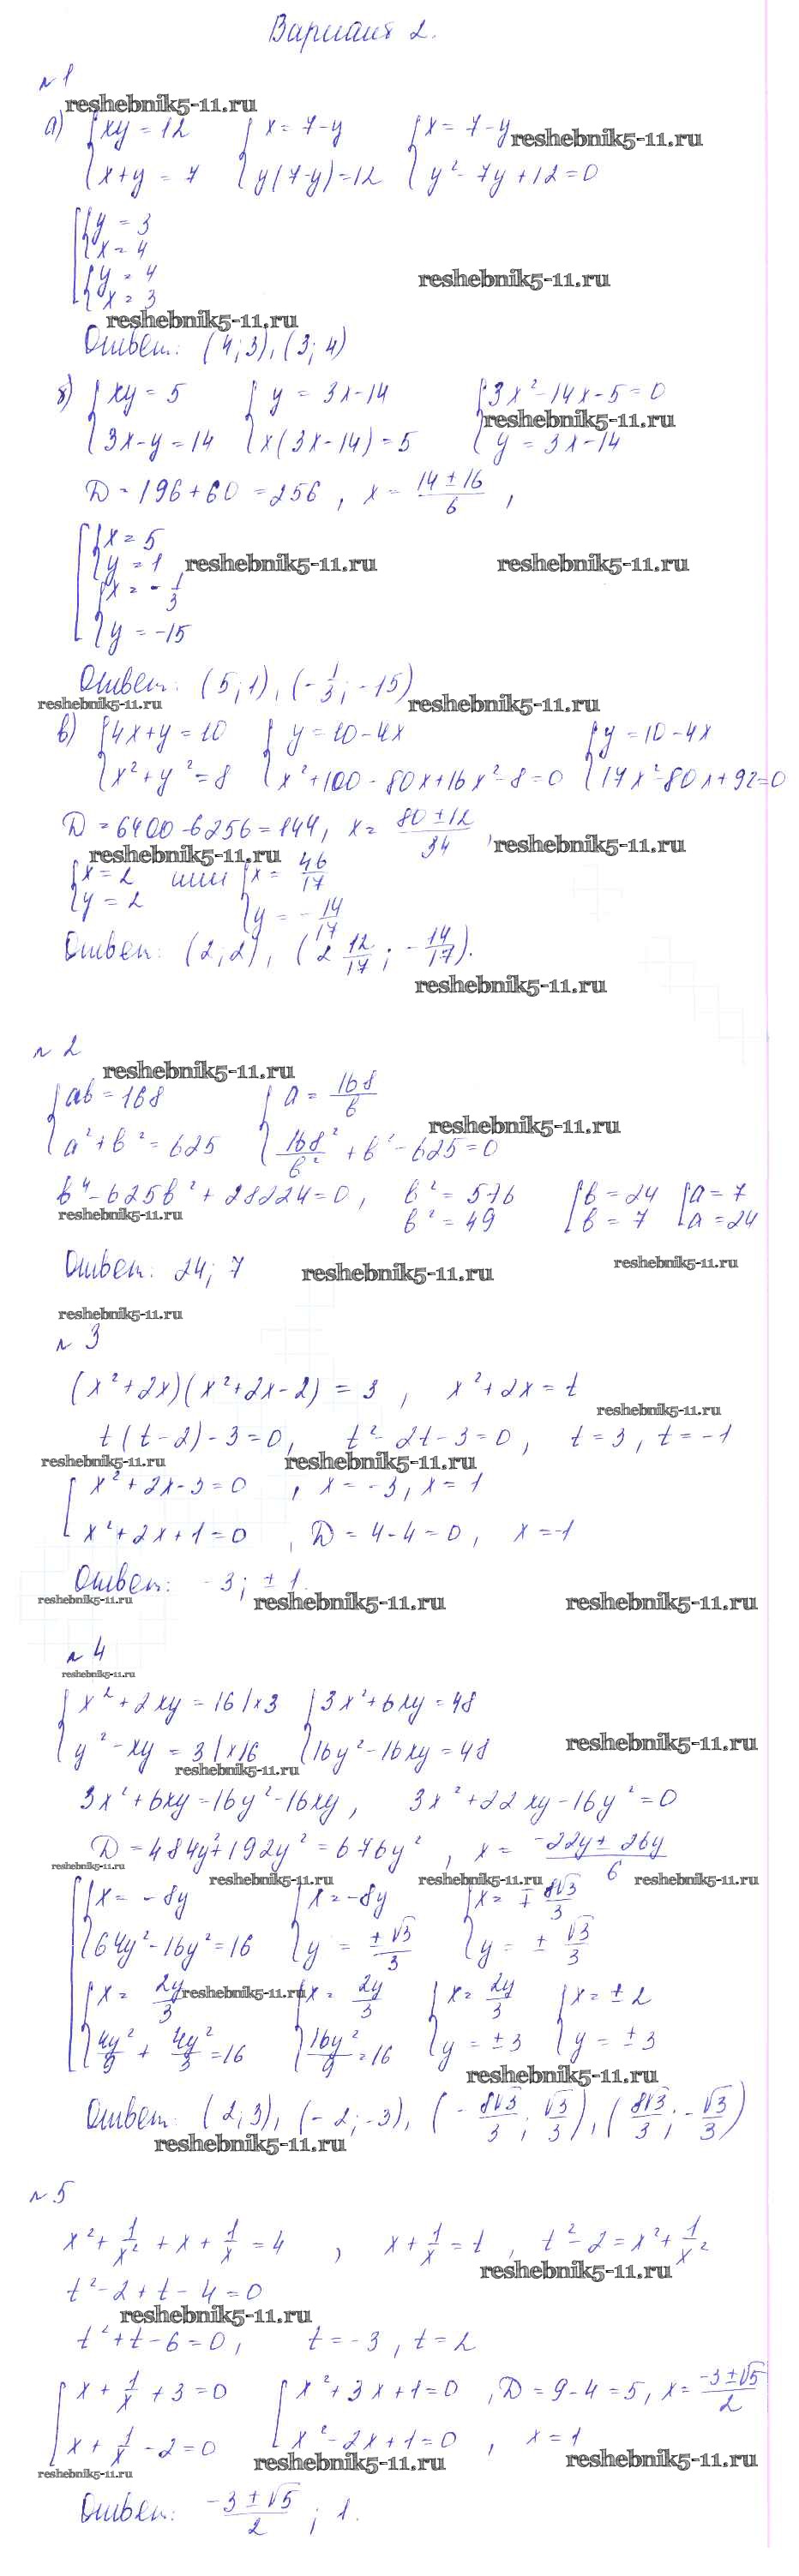 Вариант 2.
№ 1
reshebnik5-11.ru
а) { xy = 12 { x = 7-y { x = 7-y reshebnik5-11.ru
x+y = 7 y(7-y)=12 y² - 7y + 12 = 0
y = 3
x = 4
y = 4 reshebnik5-11.ru
x = 3
reshebnik5-11.ru
Ответ: (4;3), (3;4)
б) { xy = 5 { y = 3x-14 { 3x²-14x-5=0
reshebnik5-11.ru
3x-y=14 x(3x-14)=5 y = 3x-14
D = 196+60 = 256, x = (14±16)/6,
x = 5
y = 1 reshebnik5-11.ru reshebnik5-11.ru
x = -1/3
y = -15
Ответ: (5;1), (-1/3; -15)
reshebnik5-11.ru reshebnik5-11.ru
в) { 4x+y=10 { y=10-4x { y=10-4x
x²+y²=8 x²+100-80x+16x²-8=0 17x²-80x+92=0
D = 6400-6256=144, x = (80±12)/34,
reshebnik5-11.ru reshebnik5-11.ru
x = 2 или x = 46/17
y = 2 y = -14/17
Ответ: (2;2), (2 12/17; -14/17).
reshebnik5-11.ru
№ 2
reshebnik5-11.ru
{ ab = 168 { a = 168/b
reshebnik5-11.ru
a²+b²=625 168²/b² + b² - 625=0
b⁴-625b²+28224=0, b² = 576 [ b = 24 [ a = 7
reshebnik5-11.ru b² = 49 b = 7 a = 24
Ответ: 24; 7 reshebnik5-11.ru reshebnik5-11.ru
reshebnik5-11.ru
№ 3
(x²+2x)(x²+2x-2) = 3, x²+2x = t
reshebnik5-11.ru
t(t-2)-3=0, t²-2t-3=0, t=3, t=-1
reshebnik5-11.ru reshebnik5-11.ru
[ x²+2x-3=0, x=-3, x=1
x²+2x+1=0, D = 4-4=0, x=-1
Ответ: -3; ±1.
reshebnik5-11.ru reshebnik5-11.ru reshebnik5-11.ru
№ 4
reshebnik5-11.ru
{ x²+2xy=16 |×3 { 3x²+6xy=48
y²-xy = 3 |×16 16y²-16xy=48 reshebnik5-11.ru
reshebnik5-11.ru
3x²+6xy=16y²-16xy, 3x²+22xy-16y²=0
D = 484y²+192y²=676y², x = (-22y±26y)/6
reshebnik5-11.ru reshebnik5-11.ru reshebnik5-11.ru reshebnik5-11.ru
x = -8y x = -8y x = ∓8√3/3
64y²-16y²=16 y = ±√3/3 y = ±√3/3
x = 2y/3 reshebnik5-11.ru x = 2y/3 x = 2y/3 x = ±2
4y²/9 + 4y²/3 = 16 16y²/9 = 16 y = ±3 y = ±3
reshebnik5-11.ru
Ответ: (2;3), (-2;-3), (-8√3/3; √3/3), (8√3/3; -√3/3)
reshebnik5-11.ru
№ 5
x² + 1/x² + x + 1/x = 4, x + 1/x = t, t²-2 = x² + 1/x²
reshebnik5-11.ru
t²-2+t-4=0
reshebnik5-11.ru
t²+t-6=0, t=-3, t=2
[ x + 1/x + 3 = 0 [ x²+3x+1=0, D = 9-4=5, x = (-3±√5)/2
x + 1/x - 2 = 0 x²-2x+1=0, x=1
reshebnik5-11.ru reshebnik5-11.ru reshebnik5-11.ru
Ответ: (-3±√5)/2; 1.